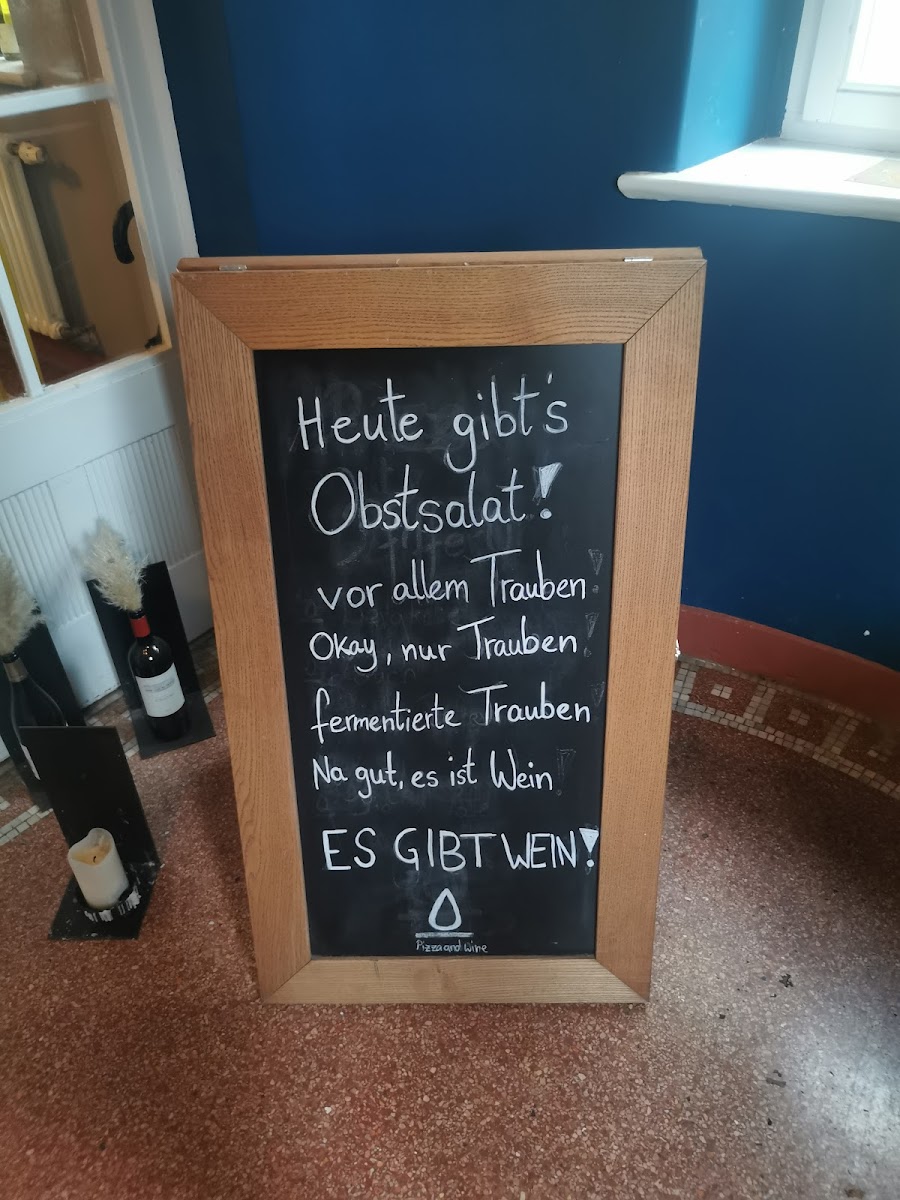 Heute gibt's
Obstsalat!
vor allem Trauben!
Okay, nur Trauben!
fermentierte Trauben
Na gut, es ist Wein!
ES GIBT WEIN!
Pizza and Wine